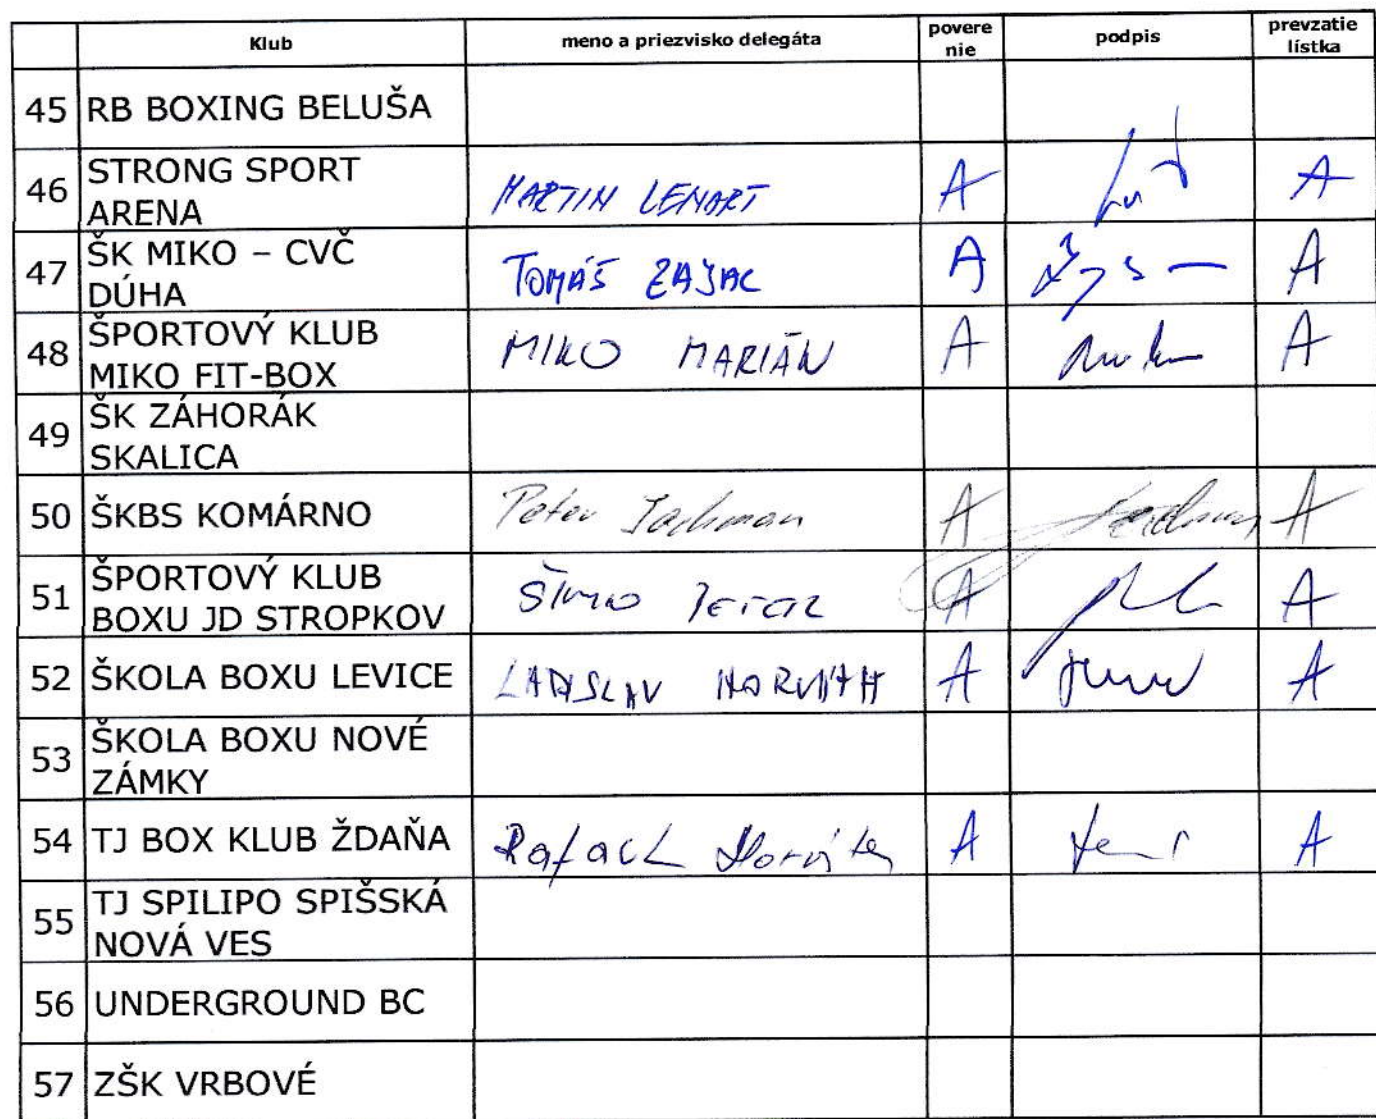 Klub meno a priezvisko delegáta povere nie podpis prevzatie lístka
45 RB BOXING BELUŠA
46 STRONG SPORT ARENA MARTIN LENART A A
47 ŠK MIKO – CVČ DÚHA TOMÁŠ ZAJAC A A
48 ŠPORTOVÝ KLUB MIKO FIT-BOX MIKO MARIÁN A A
49 ŠK ZÁHORÁK SKALICA
50 ŠKBS KOMÁRNO Peter Jachman A A
51 ŠPORTOVÝ KLUB BOXU JD STROPKOV PETER A A
52 ŠKOLA BOXU LEVICE LADISLAV HORVÁTH A A
53 ŠKOLA BOXU NOVÉ ZÁMKY
54 TJ BOX KLUB ŽDAŇA A A
55 TJ SPILIPO SPIŠSKÁ NOVÁ VES
56 UNDERGROUND BC
57 ZŠK VRBOVÉ